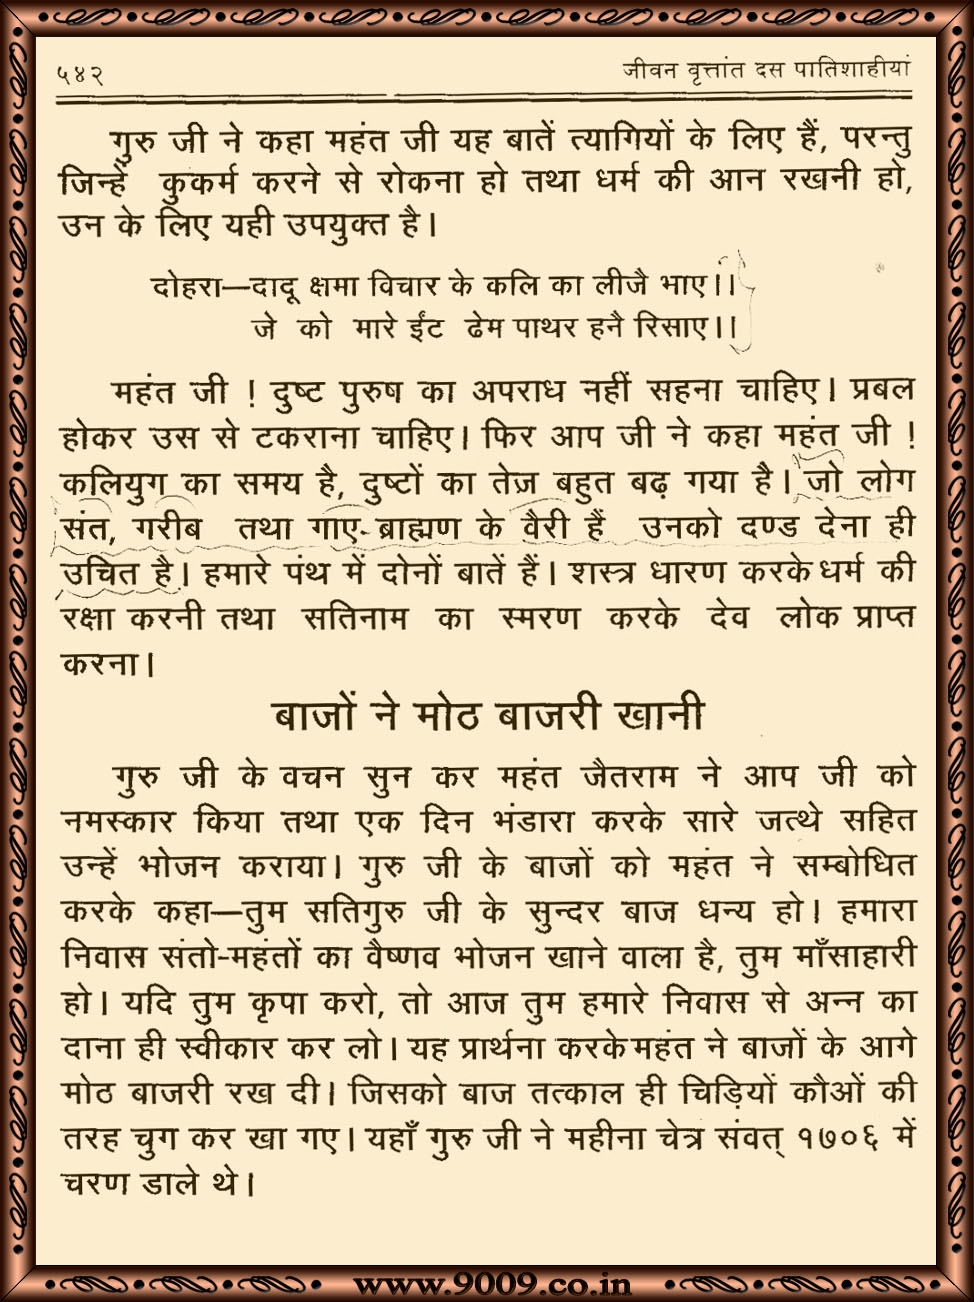 ५४२
जीवन वृत्तांत दस पातिशाहीयां
गुरु जी ने कहा महंत जी यह बातें त्यागियों के लिए हैं, परन्तु
जिन्हें कुकर्म करने से रोकना हो तथा धर्म की आन रखनी हो,
उन के लिए यही उपयुक्त है।
दोहरा—दादू क्षमा विचार के कलि का लीजै भाए।।
जे को मारे ईंट ढेम पाथर हनै रिसाए।।
महंत जी ! दुष्ट पुरुष का अपराध नहीं सहना चाहिए। प्रबल
होकर उस से टकराना चाहिए। फिर आप जी ने कहा महंत जी !
कलियुग का समय है, दुष्टों का तेज़ बहुत बढ़ गया है। जो लोग
संत, गरीब तथा गाए-ब्राह्मण के वैरी हैं उनको दण्ड देना ही
उचित है। हमारे पंथ में दोनों बातें हैं। शस्त्र धारण करके धर्म की
रक्षा करनी तथा सतिनाम का स्मरण करके देव लोक प्राप्त
करना।
बाजों ने मोठ बाजरी खानी
गुरु जी के वचन सुन कर महंत जैतराम ने आप जी को
नमस्कार किया तथा एक दिन भंडारा करके सारे जत्थे सहित
उन्हें भोजन कराया। गुरु जी के बाजों को महंत ने सम्बोधित
करके कहा—तुम सतिगुरु जी के सुन्दर बाज धन्य हो। हमारा
निवास संतो-महंतों का वैष्णव भोजन खाने वाला है, तुम माँसाहारी
हो। यदि तुम कृपा करो, तो आज तुम हमारे निवास से अन्न का
दाना ही स्वीकार कर लो। यह प्रार्थना करके महंत ने बाजों के आगे
मोठ बाजरी रख दी। जिसको बाज तत्काल ही चिड़ियों कौओं की
तरह चुग कर खा गए। यहाँ गुरु जी ने महीना चेत्र संवत् १७०६ में
चरण डाले थे।
www.9009.co.in